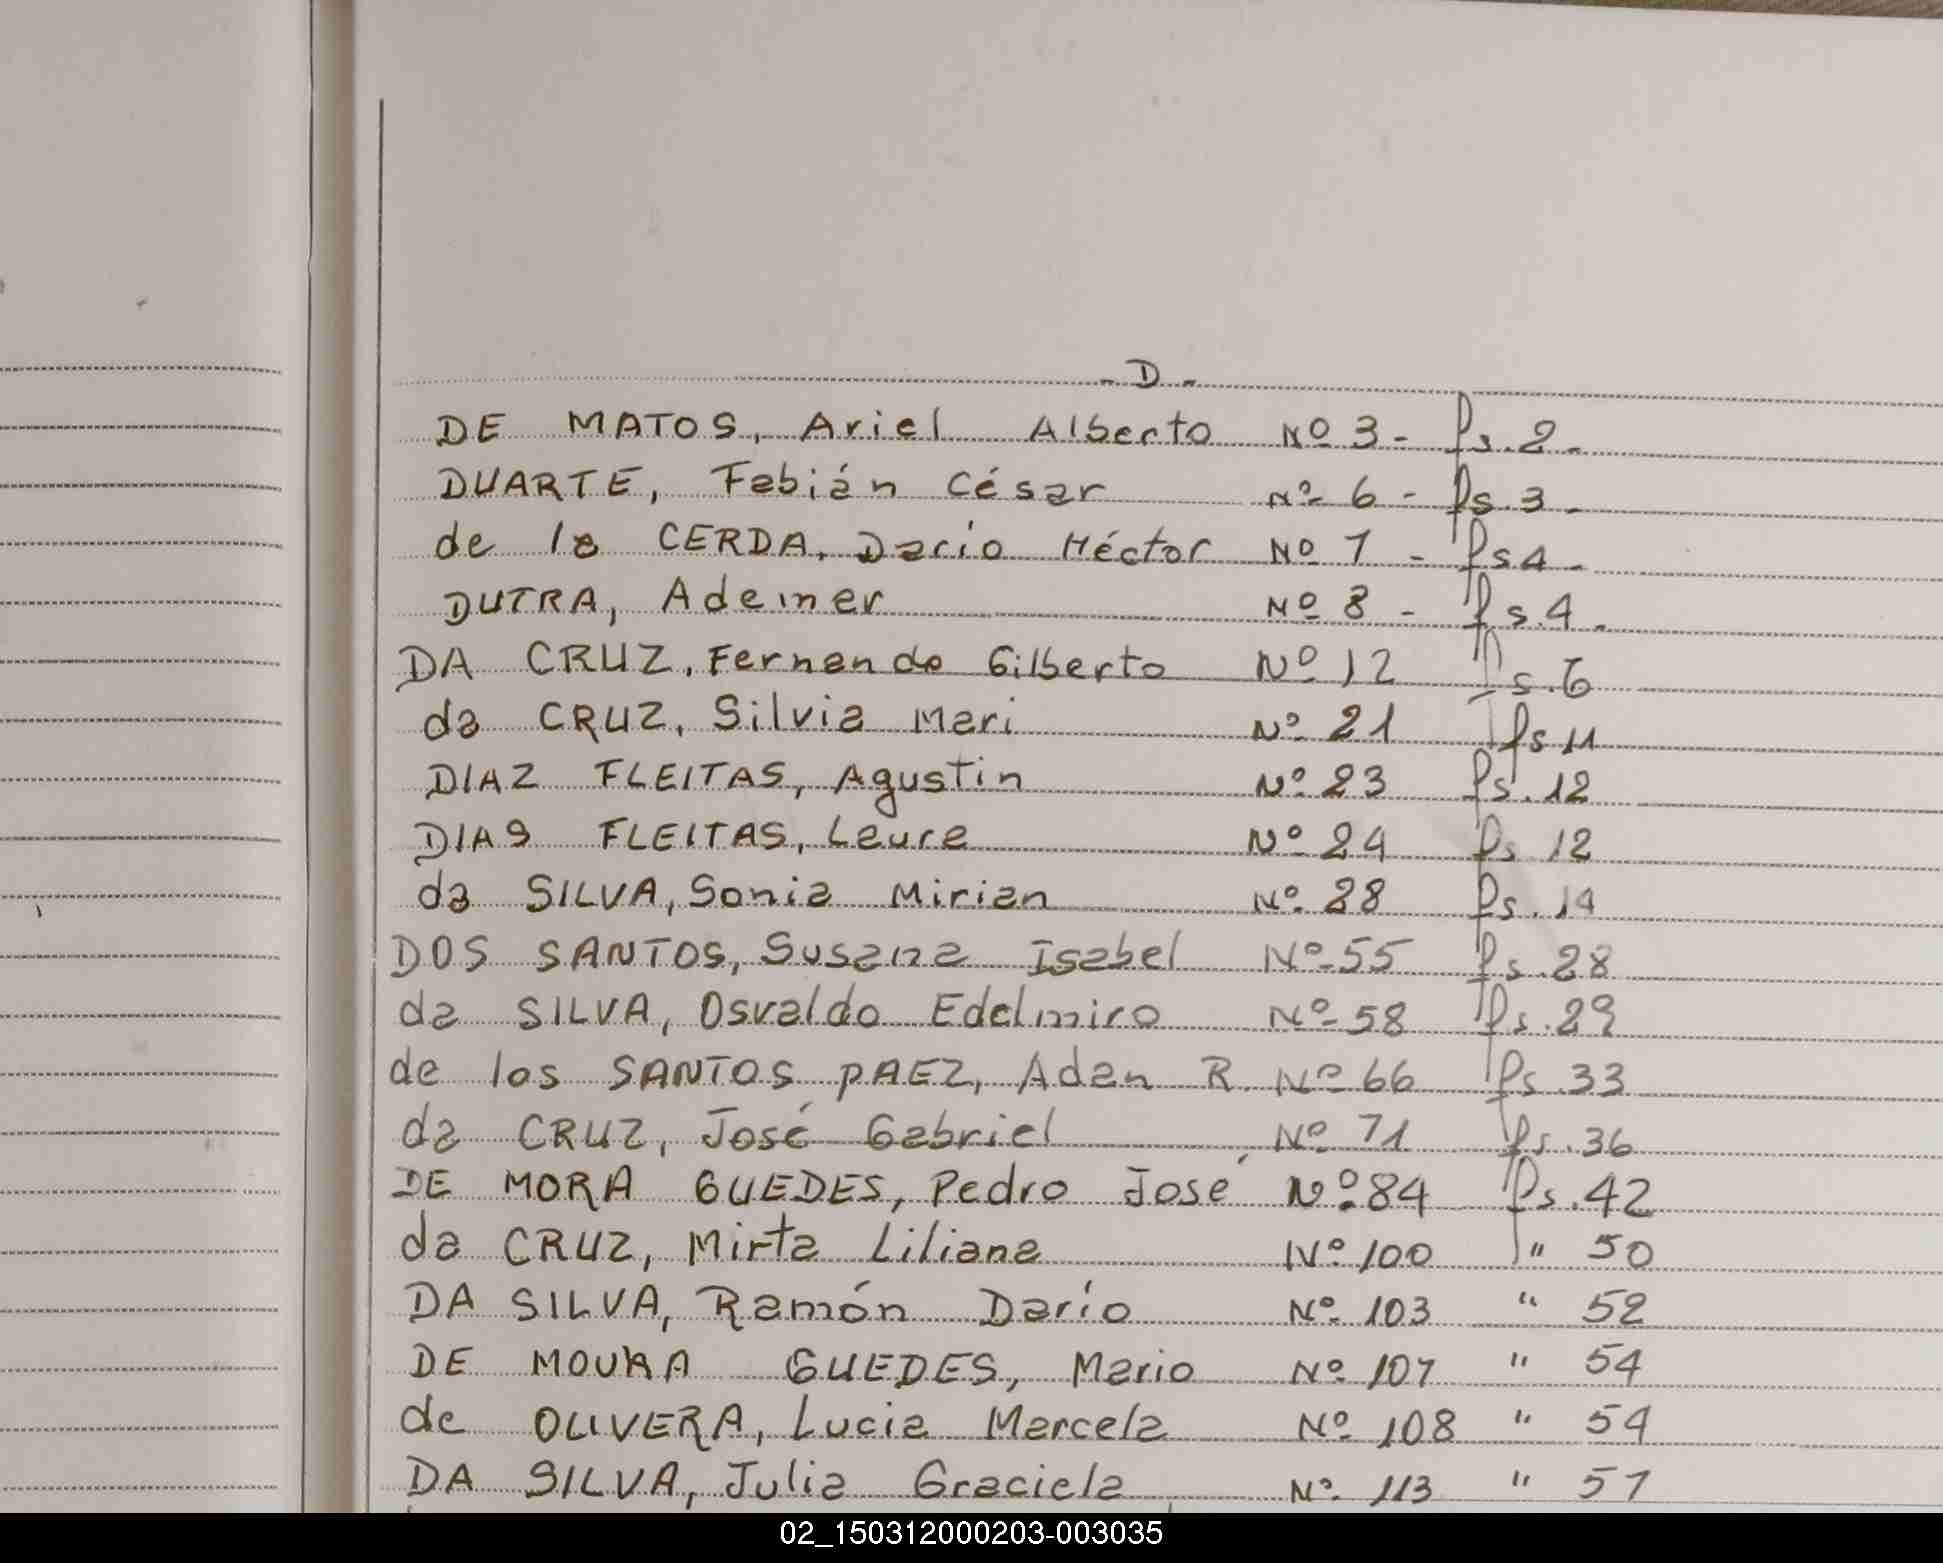 - D -
DE MATOS, Ariel Alberto Nº 3 - fs. 2 -
DUARTE, Fabián César Nº 6 - fs. 3 -
de la CERDA, Darío Héctor Nº 7 - fs 4 -
DUTRA, Ademer Nº 8 - fs. 4 -
DA CRUZ, Fernando Gilberto Nº 12 fs. 6
da CRUZ, Silvia Mari Nº 21 fs 11
DIAZ FLEITAS, Agustin Nº 23 fs. 12
DIAS FLEITAS, Laura Nº 24 fs 12
da SILVA, Sonia Mirian Nº 28 fs. 14
DOS SANTOS, Susana Isabel Nº 55 fs. 28
da SILVA, Osvaldo Edelmiro Nº 58 fs. 29
de los SANTOS PAEZ, Adan R. Nº 66 fs. 33
da CRUZ, José Gabriel Nº 71 fs. 36
DE MORA GUEDES, Pedro José Nº 84 fs. 42
da CRUZ, Mirta Liliana Nº 100 " 50
DA SILVA, Ramón Darío Nº 103 " 52
DE MOURA GUEDES, Mario Nº 107 " 54
de OLIVERA, Lucia Marcela Nº 108 " 54
DA SILVA, Julia Graciela Nº 113 " 57
02_150312000203-003035